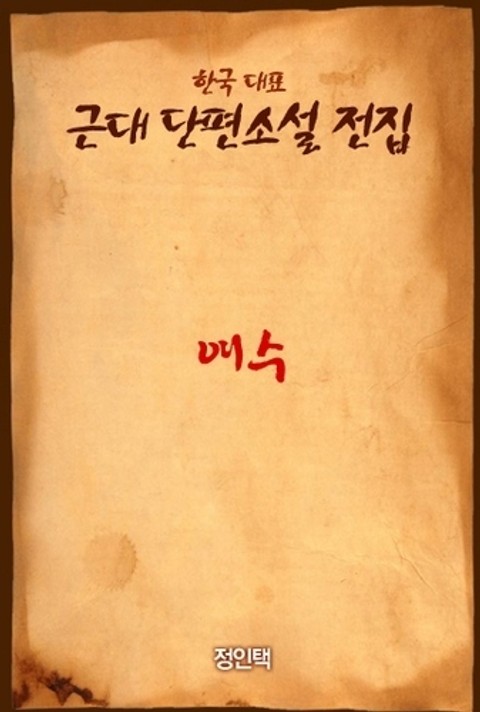 한국 대표
근대 단편소설 전집
여수
정인택